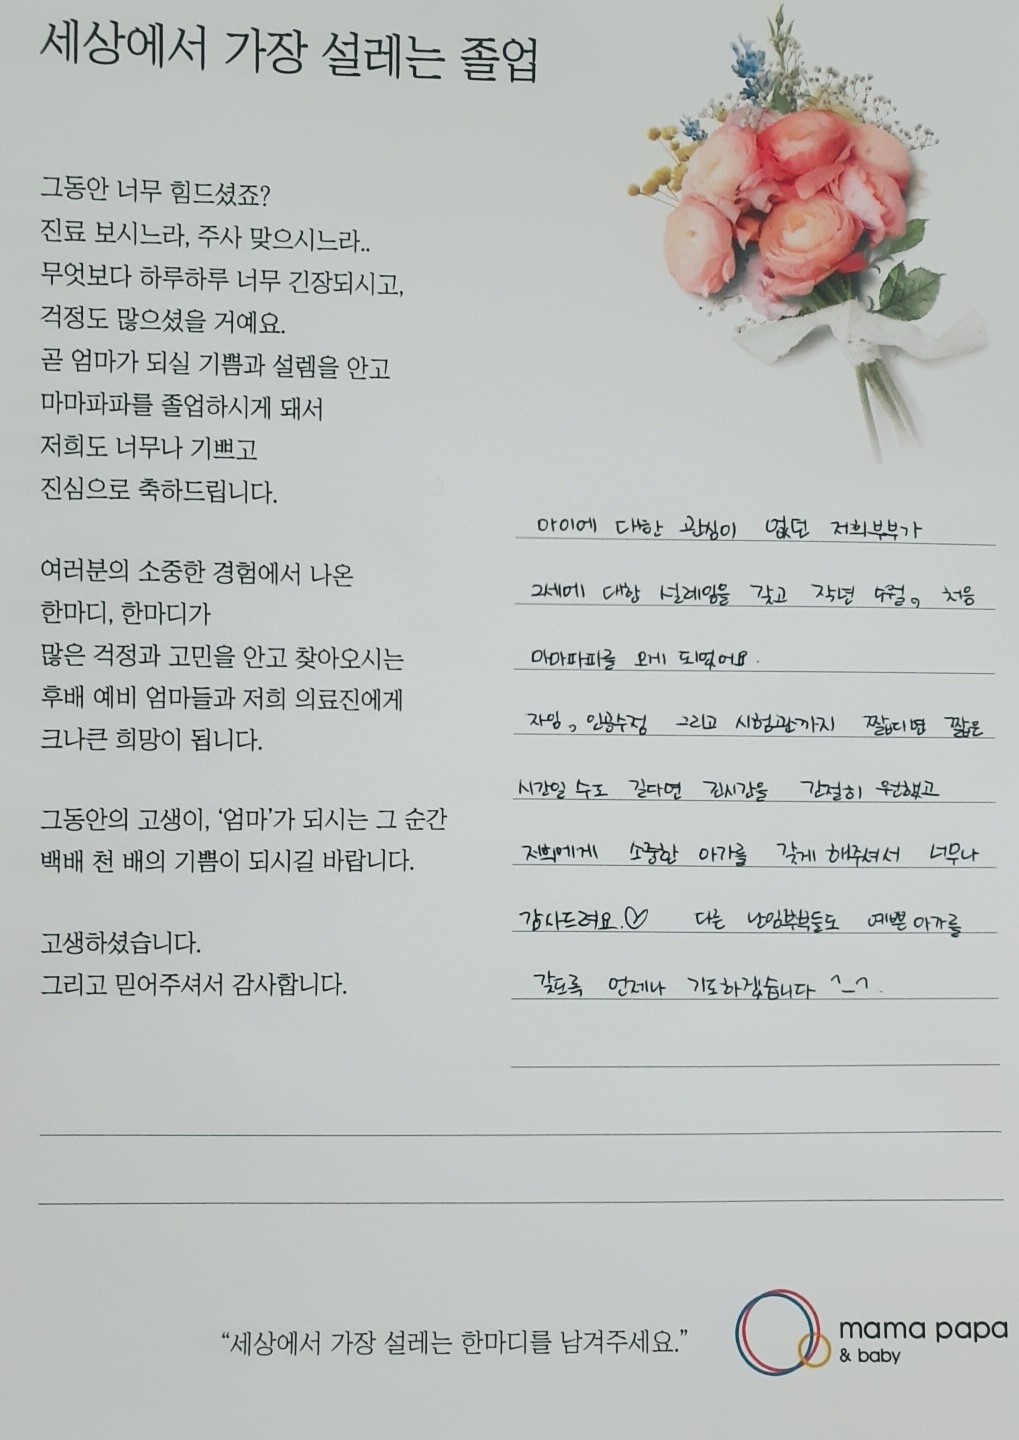 세상에서 가장 설레는 졸업
그동안 너무 힘드셨죠?
진료 보시느라, 주사 맞으시느라..
무엇보다 하루하루 너무 긴장되시고,
걱정도 많으셨을 거예요.
곧 엄마가 되실 기쁨과 설렘을 안고
마마파파를 졸업하시게 돼서
저희도 너무나 기쁘고
진심으로 축하드립니다.
여러분의 소중한 경험에서 나온
한마디, 한마디가
많은 걱정과 고민을 안고 찾아오시는
후배 예비 엄마들과 저희 의료진에게
크나큰 희망이 됩니다.
그동안의 고생이, ‘엄마’가 되시는 그 순간
백배 천 배의 기쁨이 되시길 바랍니다.
고생하셨습니다.
그리고 믿어주셔서 감사합니다.
아이에 대한 관심이 없던 저희부부가
2세에 대한 설레임을 갖고 작년 처음
마마파파를 오게 되었어요.
자임, 인공수정 그리고 시험관까지 짧다면 짧은
시간일 수도 길다면 긴시간을 간절히 원했고
저희에게 소중한 아가를 갖게 해주셔서 너무나
감사드려요.♡ 다른 난임부부들도 예쁜 아가를
갖도록 언제나 기도하겠습니다 ^_^.
“세상에서 가장 설레는 한마디를 남겨주세요.”
mama papa
& baby